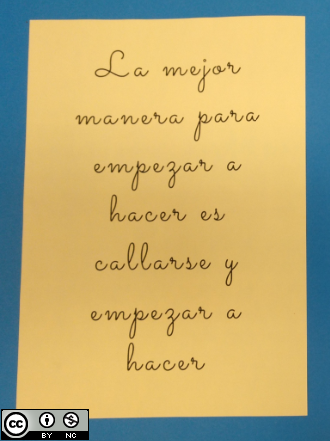 La mejor
manera para
empezar a
hacer es
callarse y
empezar a
hacer
cc
BY NC